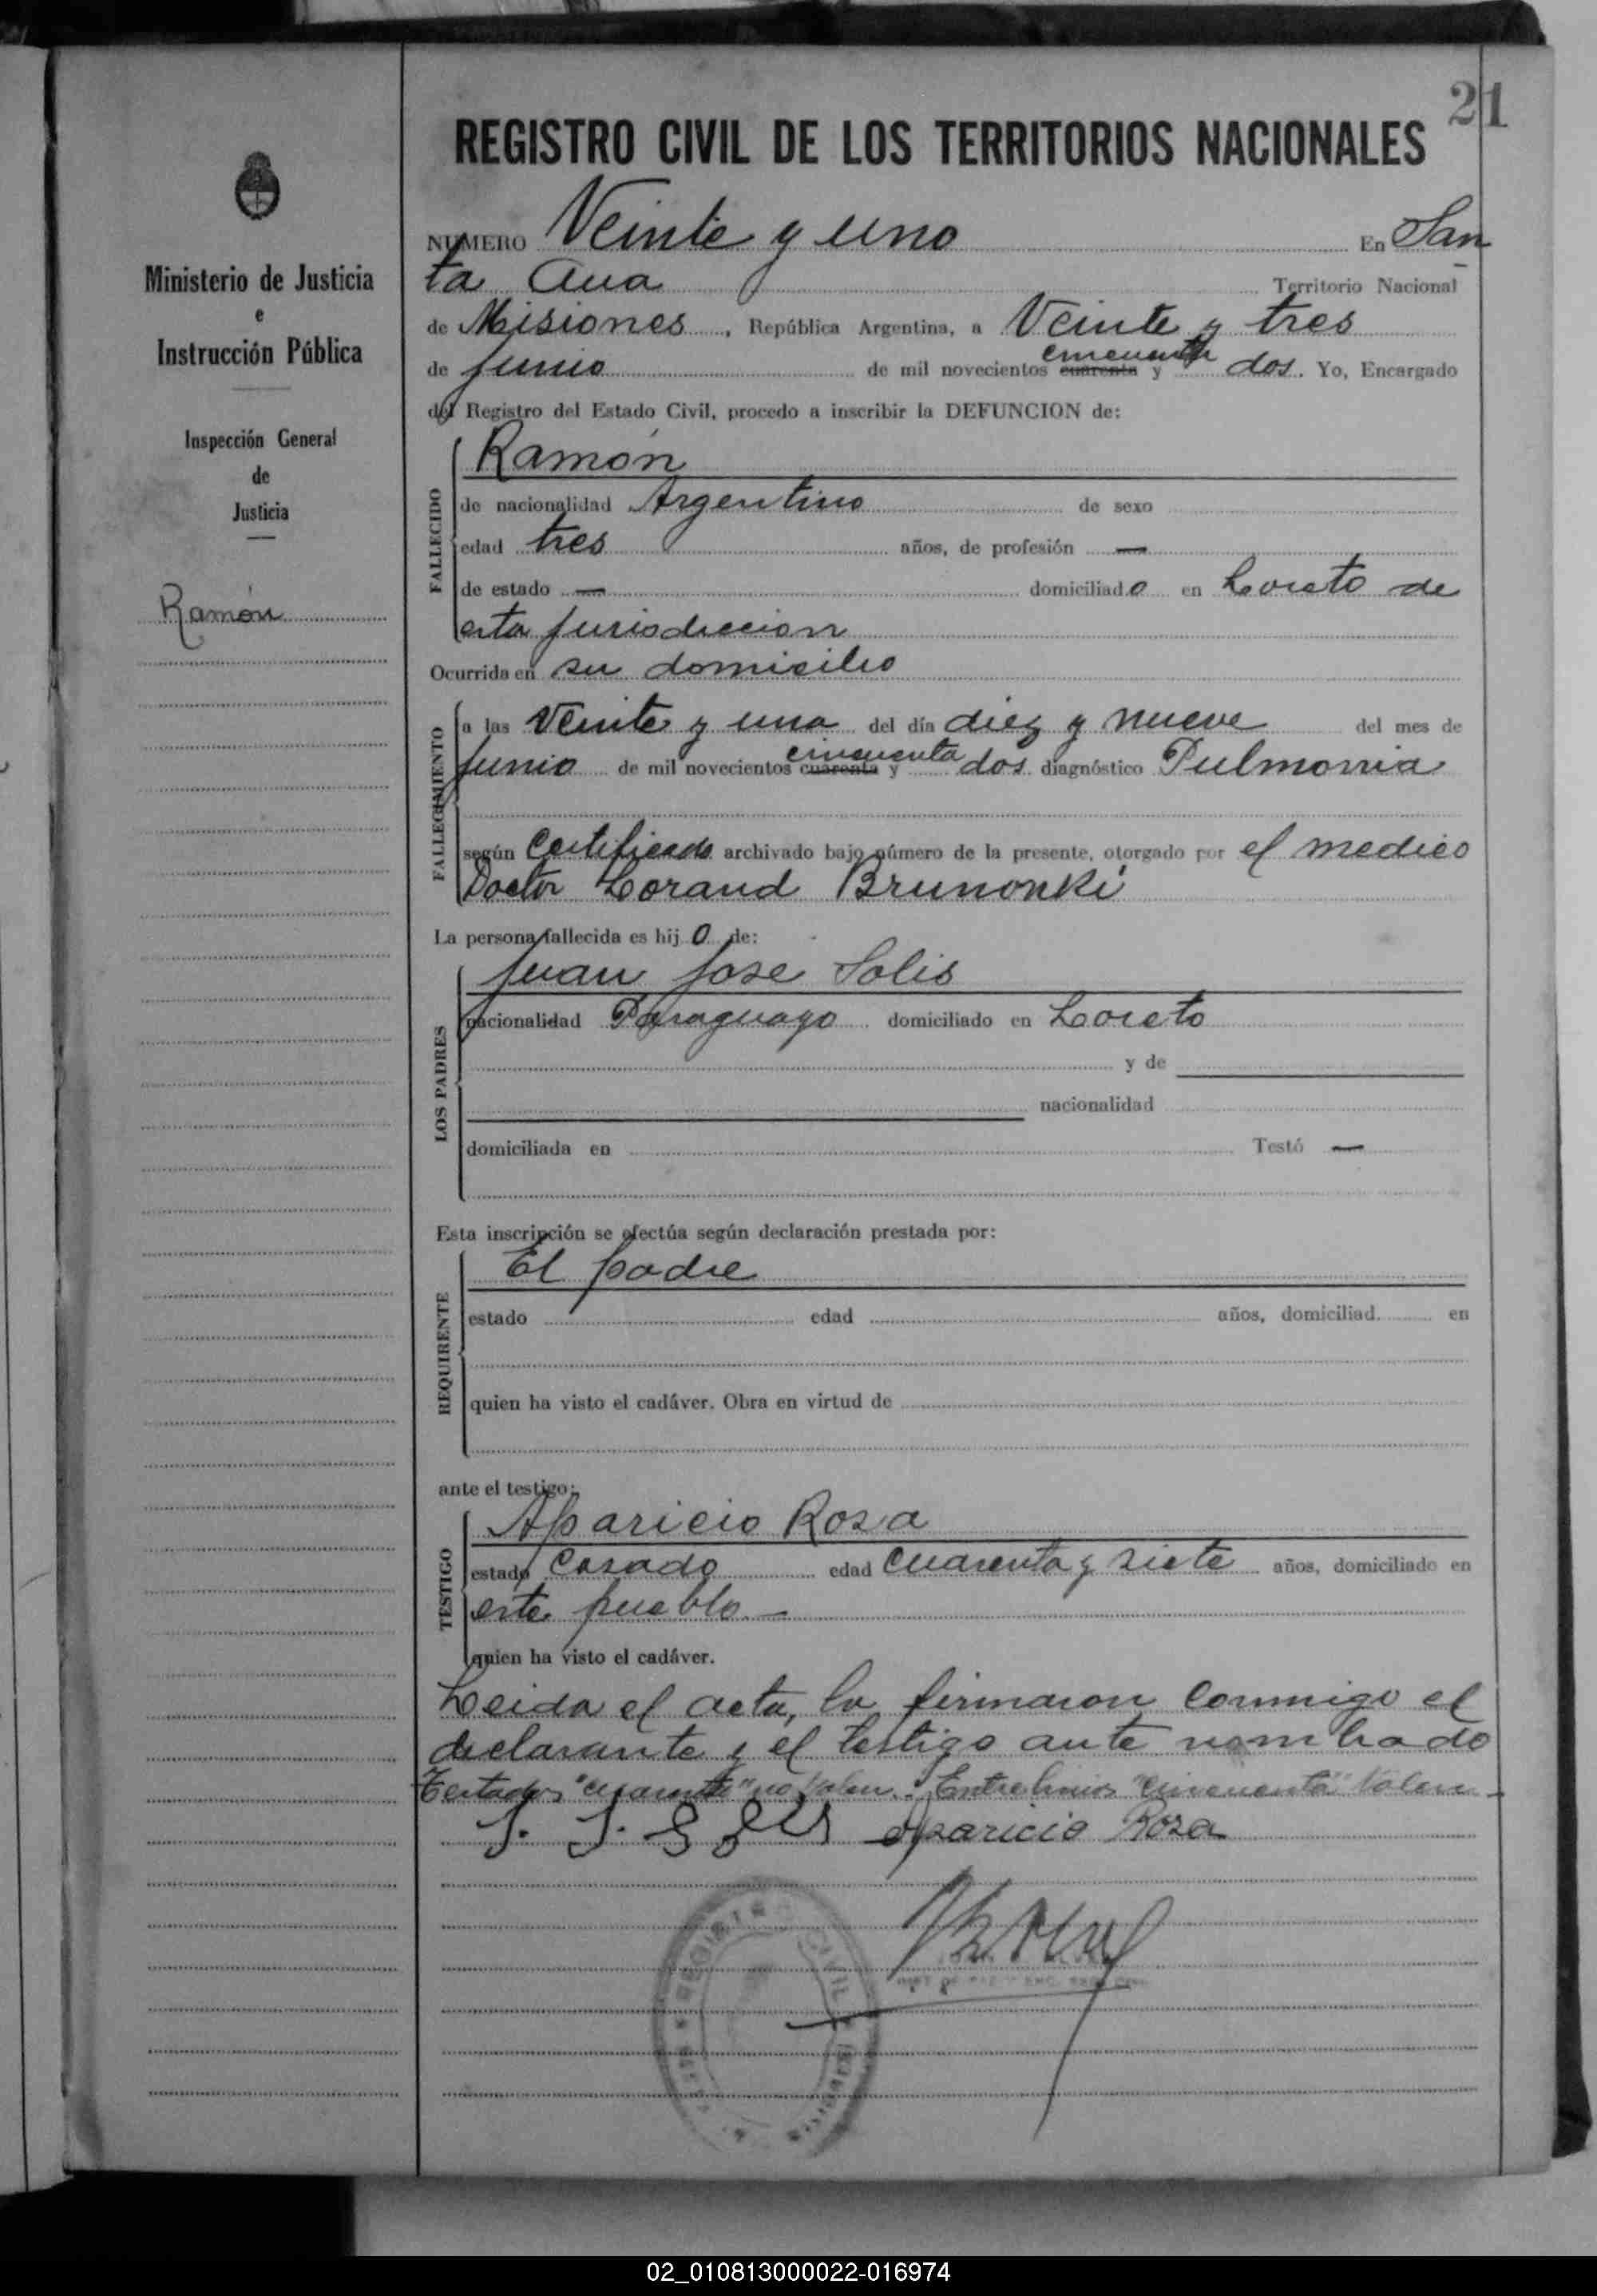 21
REGISTRO CIVIL DE LOS TERRITORIOS NACIONALES
NUMERO Veinte y uno En San
ta Ana Territorio Nacional
de Misiones, República Argentina, a Veinte y tres
cincuenta
de Junio de mil novecientos cuarenta y dos. Yo, Encargado
del Registro del Estado Civil, procedo a inscribir la DEFUNCION de:
Ministerio de Justicia
e
Instrucción Pública
Inspección General
de
Justicia
Ramón
FALLECIDO
Ramón
de nacionalidad Argentino de sexo
edad tres años, de profesión —
de estado — domiciliado en Loreto de
esta Jurisdiccion
Ocurrida en su domicilio
FALLECIMIENTO
a las Veinte y una del día diez y nueve del mes de
cincuenta
Junio de mil novecientos cuarenta y dos diagnóstico Pulmonia
según Certificado archivado bajo número de la presente, otorgado por el medico
Doctor Lorand Brunonki
La persona fallecida es hijo de:
LOS PADRES
Juan Jose Solis
nacionalidad Paraguayo domiciliado en Loreto
y de
nacionalidad
domiciliada en Testó —
Esta inscripción se efectúa según declaración prestada por:
REQUIRENTE
El padre
estado edad años, domiciliad en
quien ha visto el cadáver. Obra en virtud de
ante el testigo:
TESTIGO
Aparicio Rosa
estado Casado edad Cuarenta y siete años, domiciliado en
este pueblo —
quien ha visto el cadáver.
Leida el acta, la firmaron conmigo el
declarante y el testigo ante nombrado
Testados "cuarenta" no valen. Entrelineas "cincuenta" Valen -
J. J. Solis Aparicio Rosa
REGISTRO CIVIL
02_010813000022-016974